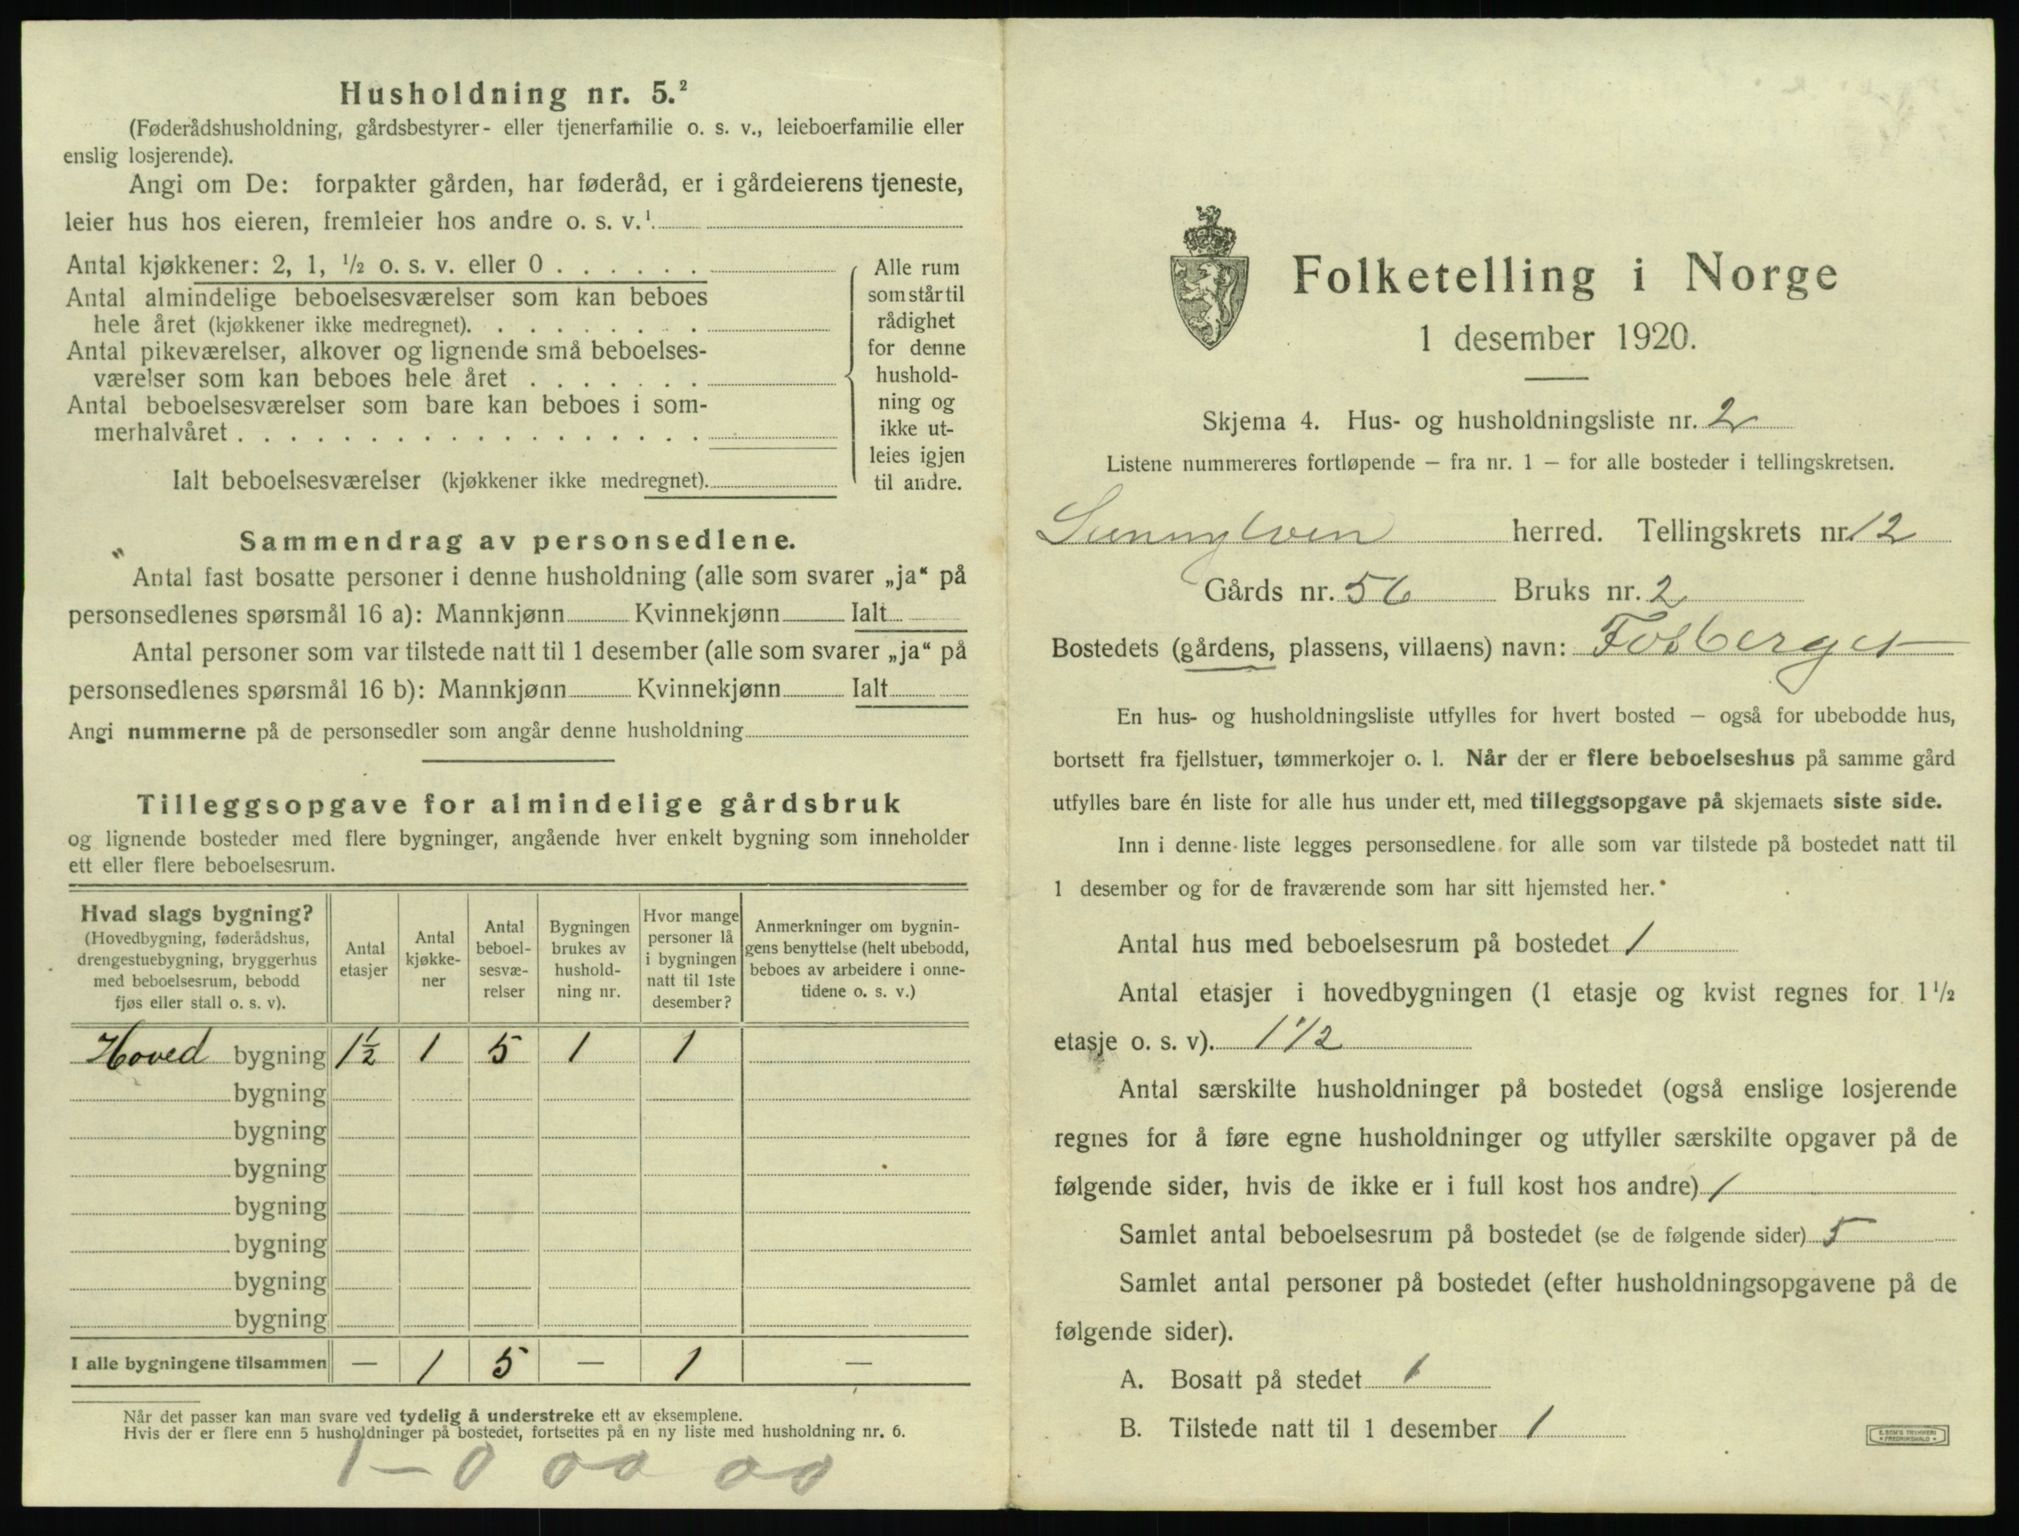 Husholdning nr. 5.²
(Føderådshusholdning, gårdsbestyrer- eller tjenerfamilie o. s. v., leieboerfamilie eller
enslig losjerende).
Angi om De: forpakter gården, har føderåd, er i gårdeierens tjeneste,
leier hus hos eieren, fremleier hos andre o. s. v.¹
Antal kjøkkener: 2, 1, ½ o. s. v. eller 0 . . . . . .
Antal almindelige beboelsesværelser som kan beboes
hele året (kjøkkener ikke medregnet). . . . . . . . .
Antal pikeværelser, alkover og lignende små beboelses-
værelser som kan beboes hele året . . . . . . .
Antal beboelsesværelser som bare kan beboes i som-
merhalvåret . . . . . . . . . . . . . . . . . .
Ialt beboelsesværelser (kjøkkener ikke medregnet).
Alle rum
som står til
rådighet
for denne
hushold-
ning og
ikke ut-
leies igjen
til andre.
Sammendrag av personsedlene.
Antal fast bosatte personer i denne husholdning (alle som svarer „ja“ på
personsedlenes spørsmål 16 a): Mannkjønn Kvinnekjønn Ialt
Antal personer som var tilstede natt til 1 desember (alle som svarer „ja“ på
personsedlenes spørsmål 16 b): Mannkjønn Kvinnekjønn Ialt
Angi nummerne på de personsedler som angår denne husholdning
Tilleggsopgave for almindelige gårdsbruk
og lignende bosteder med flere bygninger, angående hver enkelt bygning som inneholder
ett eller flere beboelsesrum.
Hvad slags bygning?
(Hovedbygning, føderådshus,
drengestuebygning, bryggerhus
med beboelsesrum, bebodd
fjøs eller stall o. s. v).
Antal
etasjer
Antal
kjøkke-
ner
Antal
beboel-
sesvæ-
relser
Bygningen
brukes av
hushold-
ning nr.
Hvor mange
personer lå
i bygningen
natt til 1ste
desember?
Anmerkninger om bygnin-
gens benyttelse (helt ubebodd,
beboes av arbeidere i onne-
tidene o. s. v.)
Hoved bygning 1½ 1 5 1 1
bygning
bygning
bygning
bygning
bygning
bygning
bygning
I alle bygningene tilsammen — 1 5 — 1 —
Når det passer kan man svare ved tydelig å understreke ett av eksemplene.
Hvis der er flere enn 5 husholdninger på bostedet, fortsettes på en ny liste med husholdning nr. 6.
1 – 0 00 00
Folketelling i Norge
1 desember 1920.
Skjema 4. Hus- og husholdningsliste nr. 2
Listene nummereres fortløpende – fra nr. 1 – for alle bosteder i tellingskretsen.
Sunnylven herred. Tellingskrets nr. 12
Gårds nr. 56 Bruks nr. 2
Bostedets (gårdens, plassens, villaens) navn: Fosberget
En hus- og husholdningsliste utfylles for hvert bosted – også for ubebodde hus,
bortsett fra fjellstuer, tømmerkojer o. l. Når der er flere beboelseshus på samme gård
utfylles bare én liste for alle hus under ett, med tilleggsopgave på skjemaets siste side.
Inn i denne liste legges personsedlene for alle som var tilstede på bostedet natt til
1 desember og for de fraværende som har sitt hjemsted her.
Antal hus med beboelsesrum på bostedet 1
Antal etasjer i hovedbygningen (1 etasje og kvist regnes for 1½
etasje o. s. v). 1½
Antal særskilte husholdninger på bostedet (også enslige losjerende
regnes for å føre egne husholdninger og utfyller særskilte opgaver på de
følgende sider, hvis de ikke er i full kost hos andre) 1
Samlet antal beboelsesrum på bostedet (se de følgende sider) 5
Samlet antal personer på bostedet (efter husholdningsopgavene på de
følgende sider).
A. Bosatt på stedet 1
B. Tilstede natt til 1 desember 1
E. SEM'S TRYKKERI
FREDRIKSHALD